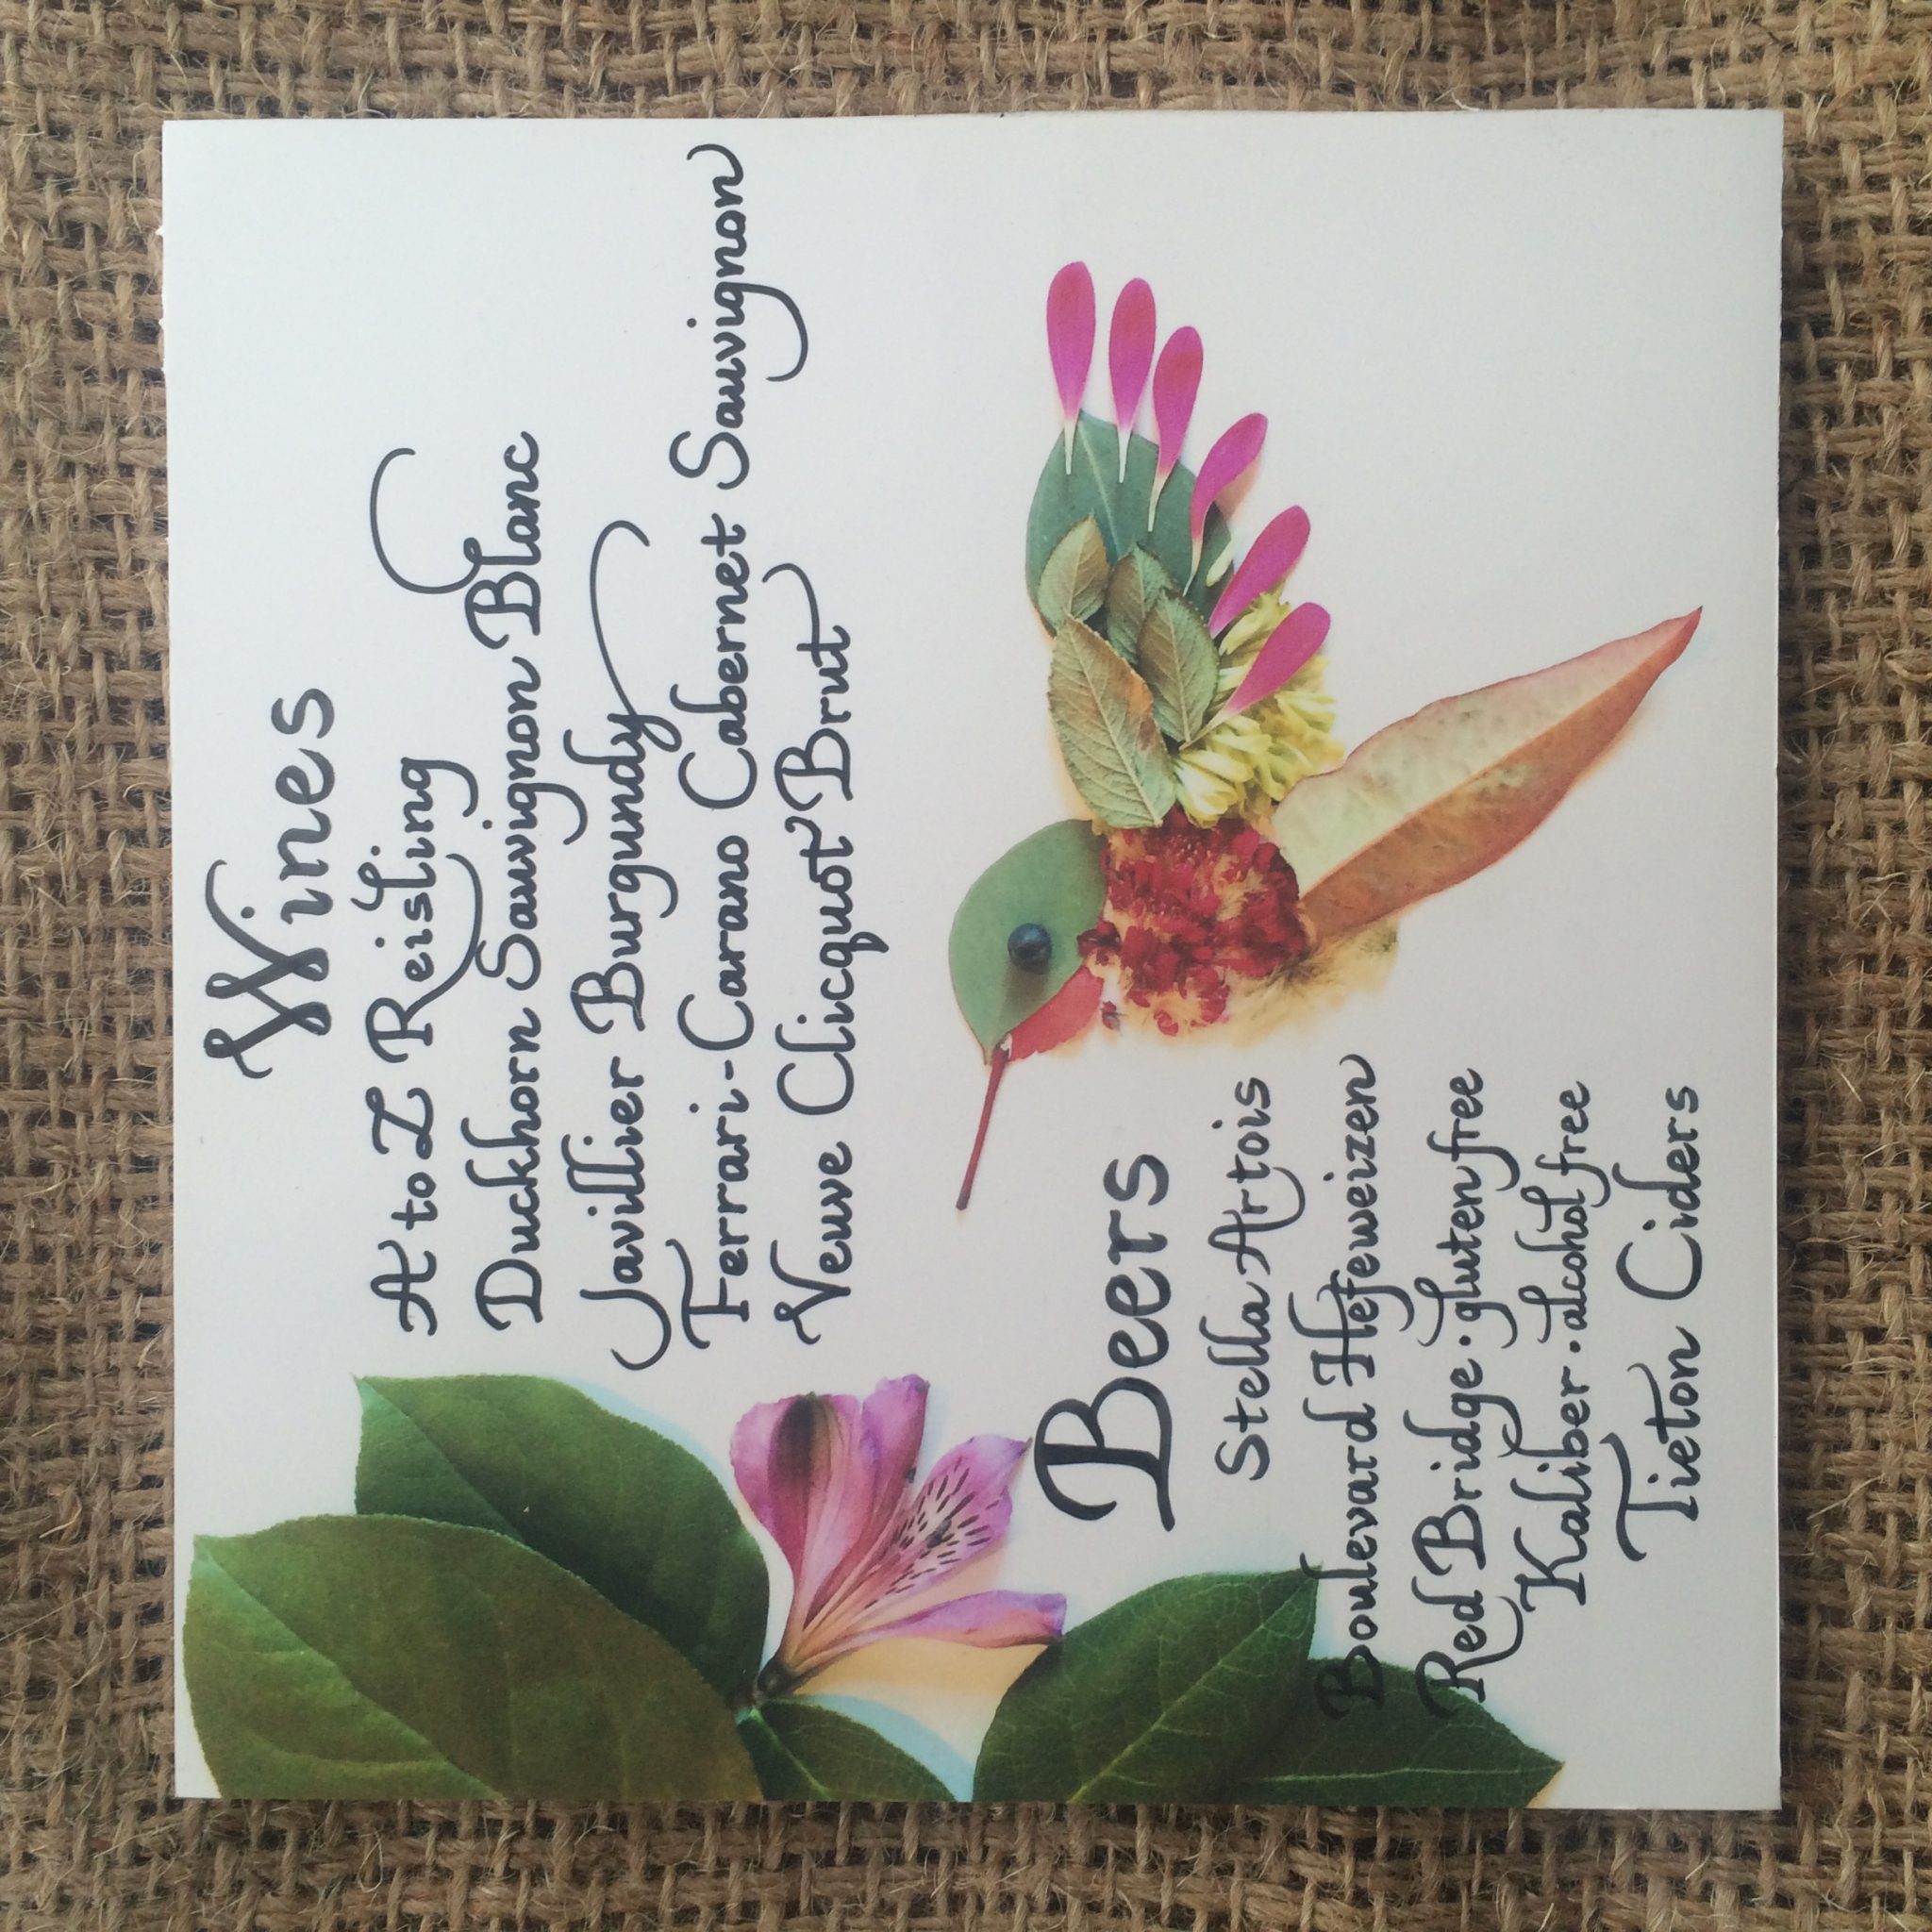 Wines
A to Z Reisling
Duckhorn Sauvignon Blanc
Javillier Burgundy
Ferrari-Carano Cabernet Sauvignon
Veuve Clicquot Brut
Beers
Stella Artois
Boulevard Hefeweizen
Red Bridge · gluten free
Kaliber · alcohol free
Tieton Ciders